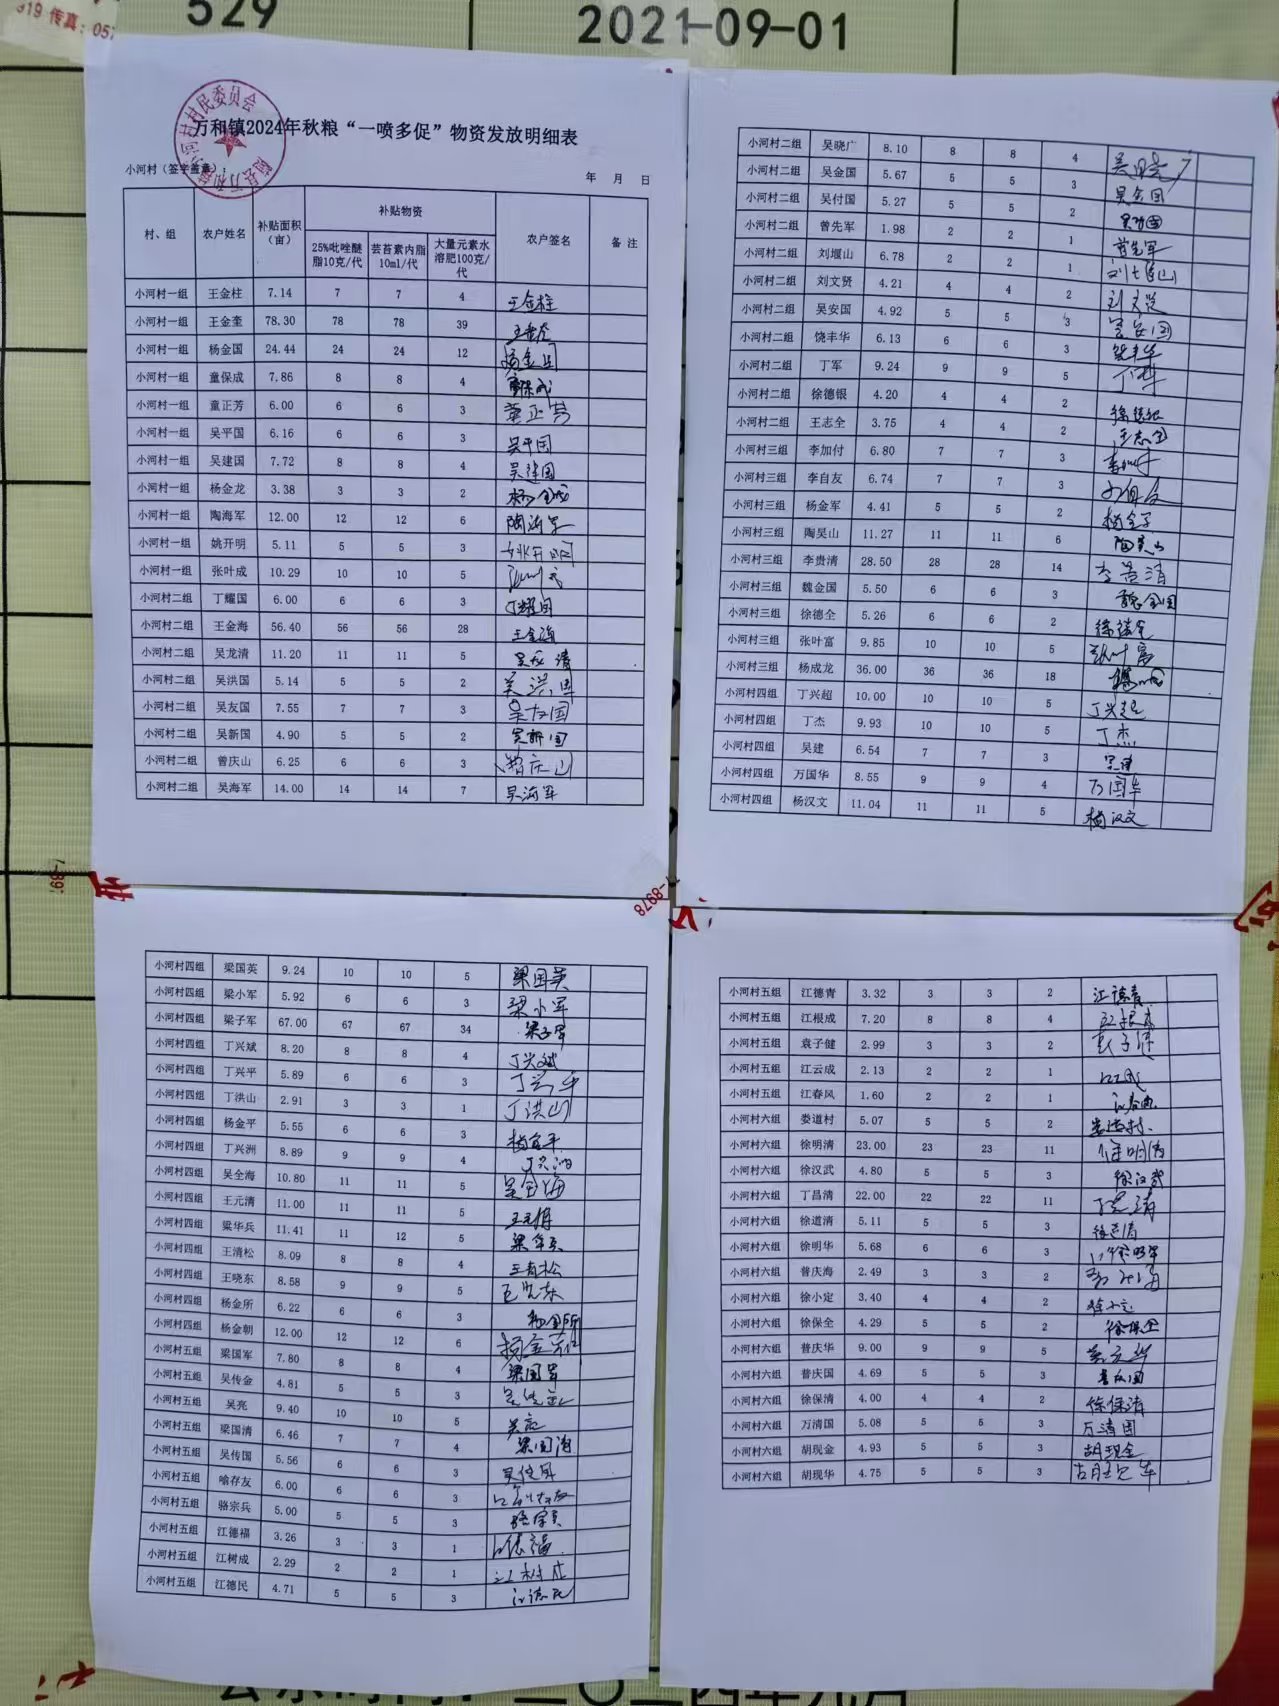 319 传真: 057
529
2021-09-01
万和镇2024年秋粮“一喷多促”物资发放明细表
小河村（签字盖章）
年 月 日
村、组 农户姓名 补贴面积（亩） 补贴物资 农户签名 备 注
25%吡唑醚脂10克/代 芸苔素内脂10ml/代 大量元素水溶肥100克/代
小河村一组 王金柱 7.14 7 7 4 王金柱
小河村一组 王金奎 78.30 78 78 39 王金奎
小河村一组 杨金国 24.44 24 24 12 杨金国
小河村一组 童保成 7.86 8 8 4 童保成
小河村一组 童正芳 6.00 6 6 3 童正芳
小河村一组 吴平国 6.16 6 6 3 吴平国
小河村一组 吴建国 7.72 8 8 4 吴建国
小河村一组 杨金龙 3.38 3 3 2 杨金龙
小河村一组 陶海军 12.00 12 12 6 陶海军
小河村一组 姚开明 5.11 5 5 3 姚开明
小河村一组 张叶成 10.29 10 10 5 张叶成
小河村二组 丁耀国 6.00 6 6 3 丁耀国
小河村二组 王金海 56.40 56 56 28 王金海
小河村二组 吴龙清 11.20 11 11 5 吴龙清
小河村二组 吴洪国 5.14 5 5 2 吴洪国
小河村二组 吴友国 7.55 7 7 3 吴友国
小河村二组 吴新国 4.90 5 5 2 吴新国
小河村二组 曾庆山 6.25 6 6 3 曾庆山
小河村二组 吴海军 14.00 14 14 7 吴海军
小河村二组 吴晓广 8.10 8 8 4 吴晓广
小河村二组 吴金国 5.67 5 5 3 吴金国
小河村二组 吴付国 5.27 5 5 2 吴付国
小河村二组 曾先军 1.98 2 2 1 曾先军
小河村二组 刘堰山 6.78 2 2 1 刘堰山
小河村二组 刘文贤 4.21 4 4 2 刘文贤
小河村二组 吴安国 4.92 5 5 3 吴安国
小河村二组 饶丰华 6.13 6 6 3 饶丰华
小河村二组 丁军 9.24 9 9 5 丁军
小河村二组 徐德银 4.20 4 4 2 徐德银
小河村二组 王志全 3.75 4 4 2 王志全
小河村三组 李加付 6.80 7 7 3 李加付
小河村三组 李自友 6.74 7 7 3
小河村三组 杨金军 4.41 5 5 2
小河村三组 陶吴山 11.27 11 11 6 陶吴山
小河村三组 李贵清 28.50 28 28 14 李贵清
小河村三组 魏金国 5.50 6 6 3 魏金国
小河村三组 徐德全 5.26 6 6 2 徐德全
小河村三组 张叶富 9.85 10 10 5 张叶富
小河村三组 杨成龙 36.00 36 36 18
小河村四组 丁兴超 10.00 10 10 5 丁兴超
小河村四组 丁杰 9.93 10 10 5 丁杰
小河村四组 吴建 6.54 7 7 3 吴建
小河村四组 万国华 8.55 9 9 4 万国华
小河村四组 杨汉文 11.04 11 11 5 杨汉文
7-8978
小河村四组 梁国英 9.24 10 10 5 梁国英
小河村四组 梁小军 5.92 6 6 3 梁小军
小河村四组 梁子军 67.00 67 67 34 梁子军
小河村四组 丁兴斌 8.20 8 8 4 丁兴斌
小河村四组 丁兴平 5.89 6 6 3 丁兴平
小河村四组 丁洪山 2.91 3 3 1 丁洪山
小河村四组 杨金平 5.55 6 6 3 杨金平
小河村四组 丁兴洲 8.89 9 9 4 丁兴洲
小河村四组 吴全海 10.80 11 11 5 吴全海
小河村四组 王元清 11.00 11 11 5 王元清
小河村四组 梁华兵 11.41 11 12 5 梁华兵
小河村四组 王清松 8.09 8 8 4 王清松
小河村四组 王晓东 8.58 9 9 5 王晓东
小河村四组 杨金所 6.22 6 6 3 杨金所
小河村四组 杨金朝 12.00 12 12 6 杨金朝
小河村五组 梁国军 7.80 8 8 4 梁国军
小河村五组 吴传金 4.81 5 5 3 吴传金
小河村五组 吴亮 9.40 10 10 5 吴亮
小河村五组 梁国清 6.46 7 7 4 梁国清
小河村五组 吴传国 5.56 6 6 3 吴传国
小河村五组 喻存友 6.00 6 6 3 喻存友
小河村五组 骆宗兵 5.00 5 5 3 骆宗兵
小河村五组 江德福 3.26 3 3 1 江德福
小河村五组 江树成 2.29 2 2 1 江树成
小河村五组 江德民 4.71 5 5 3 江德民
小河村五组 江德青 3.32 3 3 2 江德青
小河村五组 江根成 7.20 8 8 4 江根成
小河村五组 袁子健 2.99 3 3 2 袁子健
小河村五组 江云成 2.13 2 2 1
小河村五组 江春风 1.60 2 2 1 江春风
小河村六组 娄道村 5.07 5 5 2 娄道村
小河村六组 徐明清 23.00 23 23 11 徐明清
小河村六组 徐汉武 4.80 5 5 3 徐汉武
小河村六组 丁昌清 22.00 22 22 11 丁昌清
小河村六组 徐道清 5.11 5 5 3 徐道清
小河村六组 徐明华 5.68 6 6 3
小河村六组 普庆海 2.49 3 3 2
小河村六组 徐小定 3.40 4 4 2 徐小定
小河村六组 徐保全 4.29 5 5 2 徐保全
小河村六组 普庆华 9.00 9 9 5
小河村六组 普庆国 4.69 5 5 3 普庆国
小河村六组 徐保清 4.00 4 4 2 徐保清
小河村六组 万清国 5.08 5 5 3 万清国
小河村六组 胡现金 4.93 5 5 3 胡现金
小河村六组 胡现华 4.75 5 5 3 胡现华
二〇二四年九月